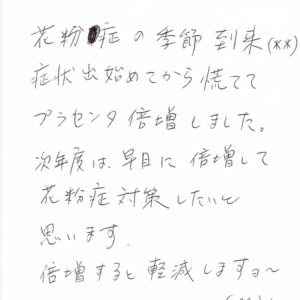 花粉症の季節到来(**)
症状出始めてから慌てて
プラセンタ倍増しました。
次年度は、早目に倍増して
花粉症対策したいと
思います.
倍増すると軽減しますョ〜